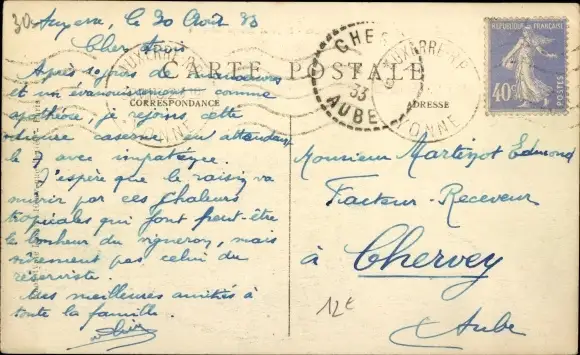 30
Auxerre, le 30 Août 33
Cher
Après 10 jours de manœuvres
et un évanouissement comme
apothéose, je rejoins cette
caserne en attendant
le 7 avec impatience.
J'espère que le raisin va
murir par ces chaleurs
tropicales qui font peut-être
le bonheur du vigneron, mais
sûrement pas celui du
réserviste.
Mes meilleures amitiés à
toute la famille.
CARTE POSTALE
CORRESPONDANCE
ADRESSE
AUXERRE
YONNE
33
AUBE
AUXERRE
YONNE
REPUBLIQUE FRANÇAISE
40c
POSTES
Monsieur Martinot Edmond
Facteur-Receveur
à Chervey
Aube
12€